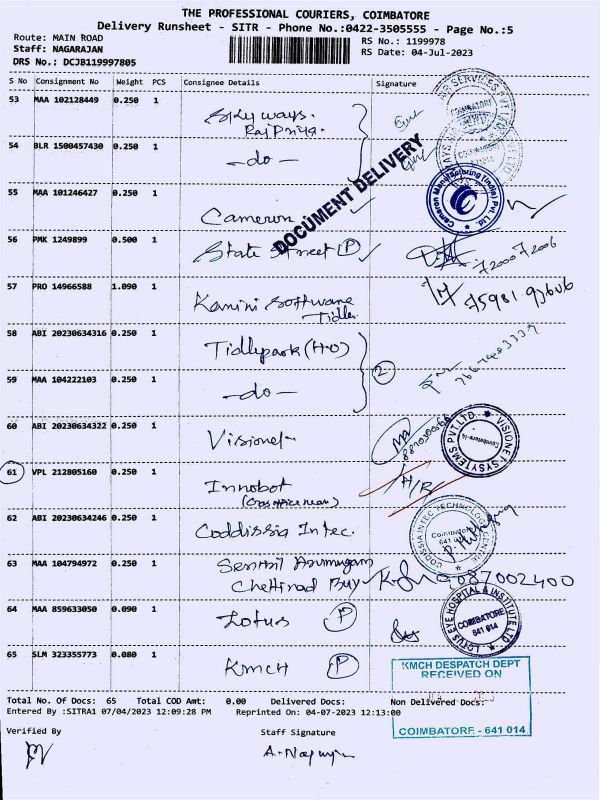 THE PROFESSIONAL COURIERS, COIMBATORE
Delivery Runsheet - SITR - Phone No.:0422-3505555 - Page No.:5
Route: MAIN ROAD
RS No.: 1199978
Staff: NAGARAJAN
RS Date: 04-Jul-2023
DRS No.: DCJB119997805
S No Consignment No Weight PCS Consignee Details Signature
53 MAA 102128449 0.250 1
Skyways.
Rajpriya.
54 BLR 1500457430 0.250 1
-do-
DOCUMENT DELIVERY
55 MAA 101246427 0.250 1
Cameron
Cameron Manufacturing (India) Pvt Ltd
56 PMK 1249899 0.500 1
State Street (P)
72000 72006
57 PRO 14966588 1.090 1
Kanini Software
Tidle
58 ABI 20230634316 0.250 1
Tidlypark (H-O)
2
59 MAA 104222103 0.250 1
-do-
60 ABI 20230634322 0.250 1
Visionet
VISIONET SYSTEMS PVT.LTD.
61 VPL 212805160 0.250 1
Innobot
H/R
62 ABI 20230634246 0.250 1
Coddissia Intec.
CODISSIA INTEC TECHNOLOGY CENTRE
Coimbatore
641 014
63 MAA 104794972 0.250 1
Senthil Arumugam
Chettinad Buy
087002400
64 MAA 859633050 0.090 1
Lotus (P)
LOTUS EYE HOSPITAL & INSTITUTE LTD
COIMBATORE
641 014
65 SLM 323355773 0.080 1
KMCH (P)
KMCH DESPATCH DEPT
RECEIVED ON
COIMBATORE - 641 014
Total No. Of Docs: 65 Total COD Amt: 0.00 Delivered Docs: Non Delivered Docs:
Entered By :SITRA1 07/04/2023 12:09:28 PM Reprinted On: 04-07-2023 12:13:00
Verified By
Staff Signature